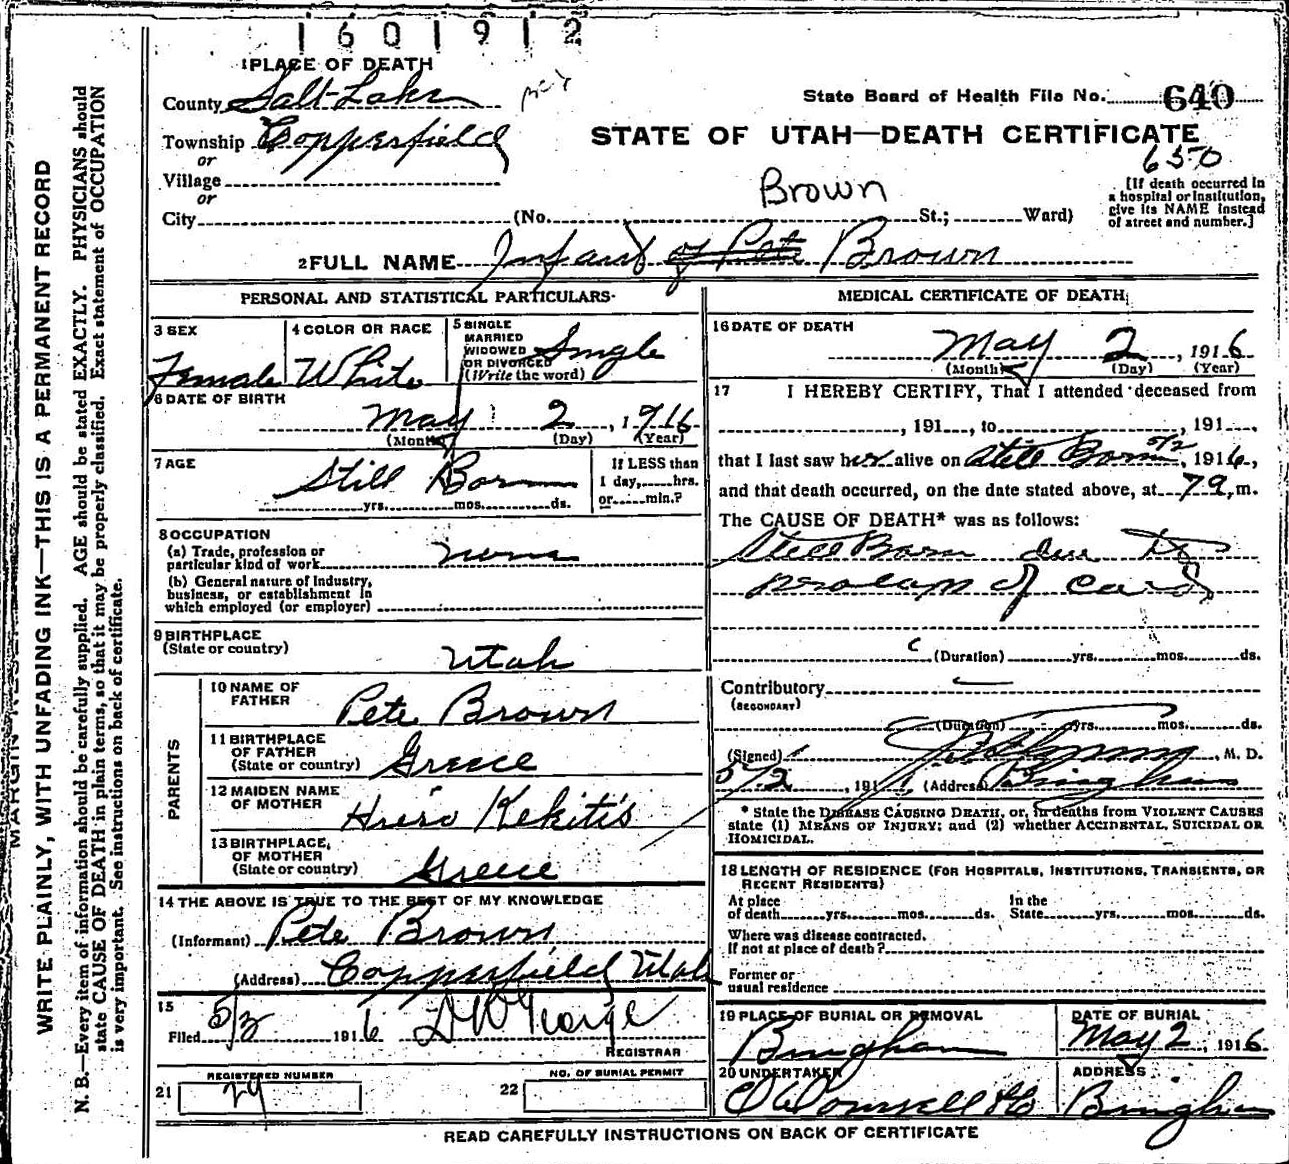 1601912
1 PLACE OF DEATH
County Salt Lake
State Board of Health File No. 640
Township Copperfield
STATE OF UTAH—DEATH CERTIFICATE
650
or
Village
or
City (No. St.; Ward)
Brown
[If death occurred in
a hospital or institution,
give its NAME instead
of street and number.]
2 FULL NAME Infant of Pete Brown
PERSONAL AND STATISTICAL PARTICULARS
3 SEX
Female
4 COLOR OR RACE
White
5 SINGLE
MARRIED
WIDOWED
OR DIVORCED
(Write the word)
Single
6 DATE OF BIRTH
May 2, 1916
(Month) (Day) (Year)
7 AGE
Still Born
yrs. mos. ds.
If LESS than
1 day, hrs.
or min.?
8 OCCUPATION
(a) Trade, profession or
particular kind of work
(b) General nature of industry,
business, or establishment in
which employed (or employer)
9 BIRTHPLACE
(State or country)
Utah
PARENTS
10 NAME OF
FATHER
Pete Brown
11 BIRTHPLACE
OF FATHER
(State or country)
Greece
12 MAIDEN NAME
OF MOTHER
Kekitis
13 BIRTHPLACE
OF MOTHER
(State or country)
Greece
14 THE ABOVE IS TRUE TO THE BEST OF MY KNOWLEDGE
(Informant) Pete Brown
(Address) Copperfield Utah
15
Filed 5/2 1916
REGISTRAR
21 REGISTERED NUMBER
29
22 NO. OF BURIAL PERMIT
MEDICAL CERTIFICATE OF DEATH
16 DATE OF DEATH
May 2, 1916
(Month) (Day) (Year)
17 I HEREBY CERTIFY, That I attended deceased from
, 191 , to , 191 ,
that I last saw her alive on Still Born 5/2, 1916,
and that death occurred, on the date stated above, at m.
The CAUSE OF DEATH* was as follows:
Still Born due to
prolaps of cord
(Duration) yrs. mos. ds.
Contributory
(SECONDARY)
(Duration) yrs. mos. ds.
(Signed) , M. D.
5/2, 191 (Address) Bingham
* State the DISEASE CAUSING DEATH, or, in deaths from VIOLENT CAUSES
state (1) MEANS OF INJURY; and (2) whether ACCIDENTAL, SUICIDAL OR
HOMICIDAL.
18 LENGTH OF RESIDENCE (FOR HOSPITALS, INSTITUTIONS, TRANSIENTS, OR
RECENT RESIDENTS)
At place
of death yrs. mos. ds.
In the
State yrs. mos. ds.
Where was disease contracted,
if not at place of death?
Former or
usual residence
19 PLACE OF BURIAL OR REMOVAL
Bingham
DATE OF BURIAL
May 2, 1916
20 UNDERTAKER
O'Donnell & Co
ADDRESS
Bingham
READ CAREFULLY INSTRUCTIONS ON BACK OF CERTIFICATE
WRITE PLAINLY, WITH UNFADING INK—THIS IS A PERMANENT RECORD
N. B.—Every item of information should be carefully supplied. AGE should be stated EXACTLY. PHYSICIANS should
state CAUSE OF DEATH in plain terms, so that it may be properly classified. Exact statement of OCCUPATION
is very important. See instructions on back of certificate.